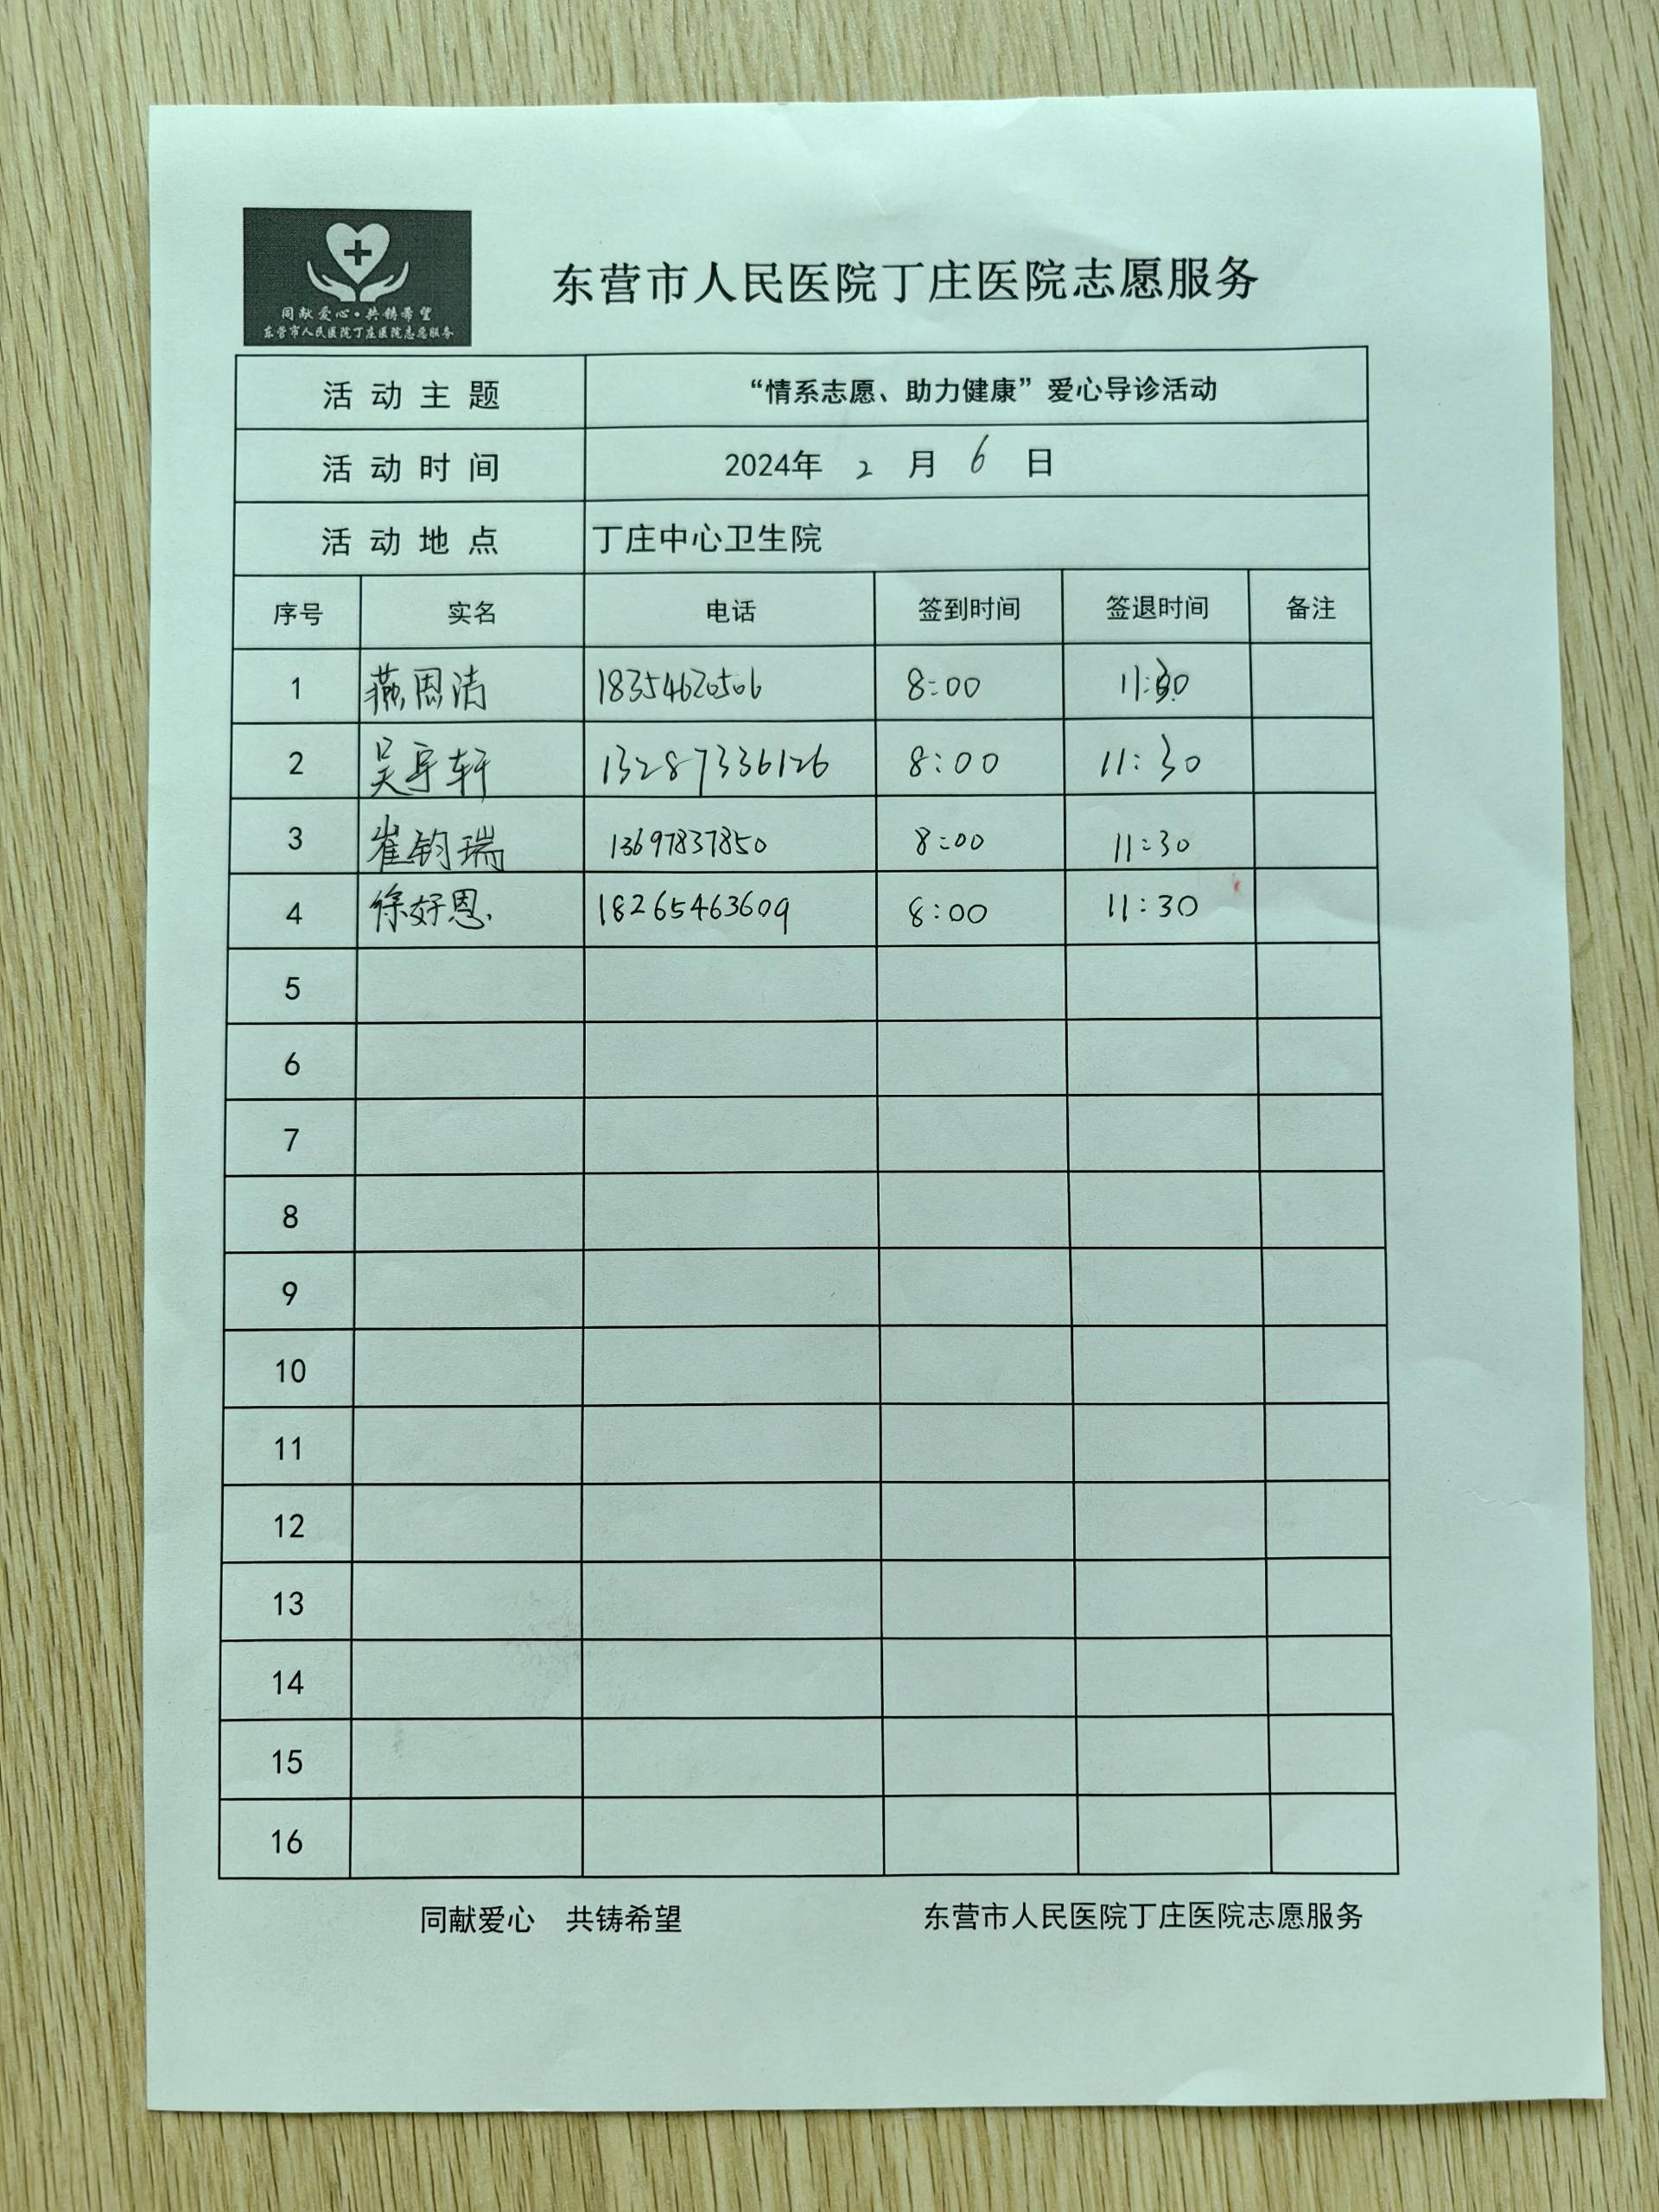 同献爱心·共铸希望
东营市人民医院丁庄医院志愿服务
东营市人民医院丁庄医院志愿服务
活动主题 “情系志愿、助力健康”爱心导诊活动
活动时间 2024年 2 月 6 日
活动地点 丁庄中心卫生院
序号 实名 电话 签到时间 签退时间 备注
1 燕恩清 18354620506 8:00 11:30
2 吴宇轩 13287336126 8:00 11:30
3 崔钧瑞 13697837850 8:00 11:30
4 徐好恩 18265463609 8:00 11:30
5
6
7
8
9
10
11
12
13
14
15
16
同献爱心 共铸希望 东营市人民医院丁庄医院志愿服务